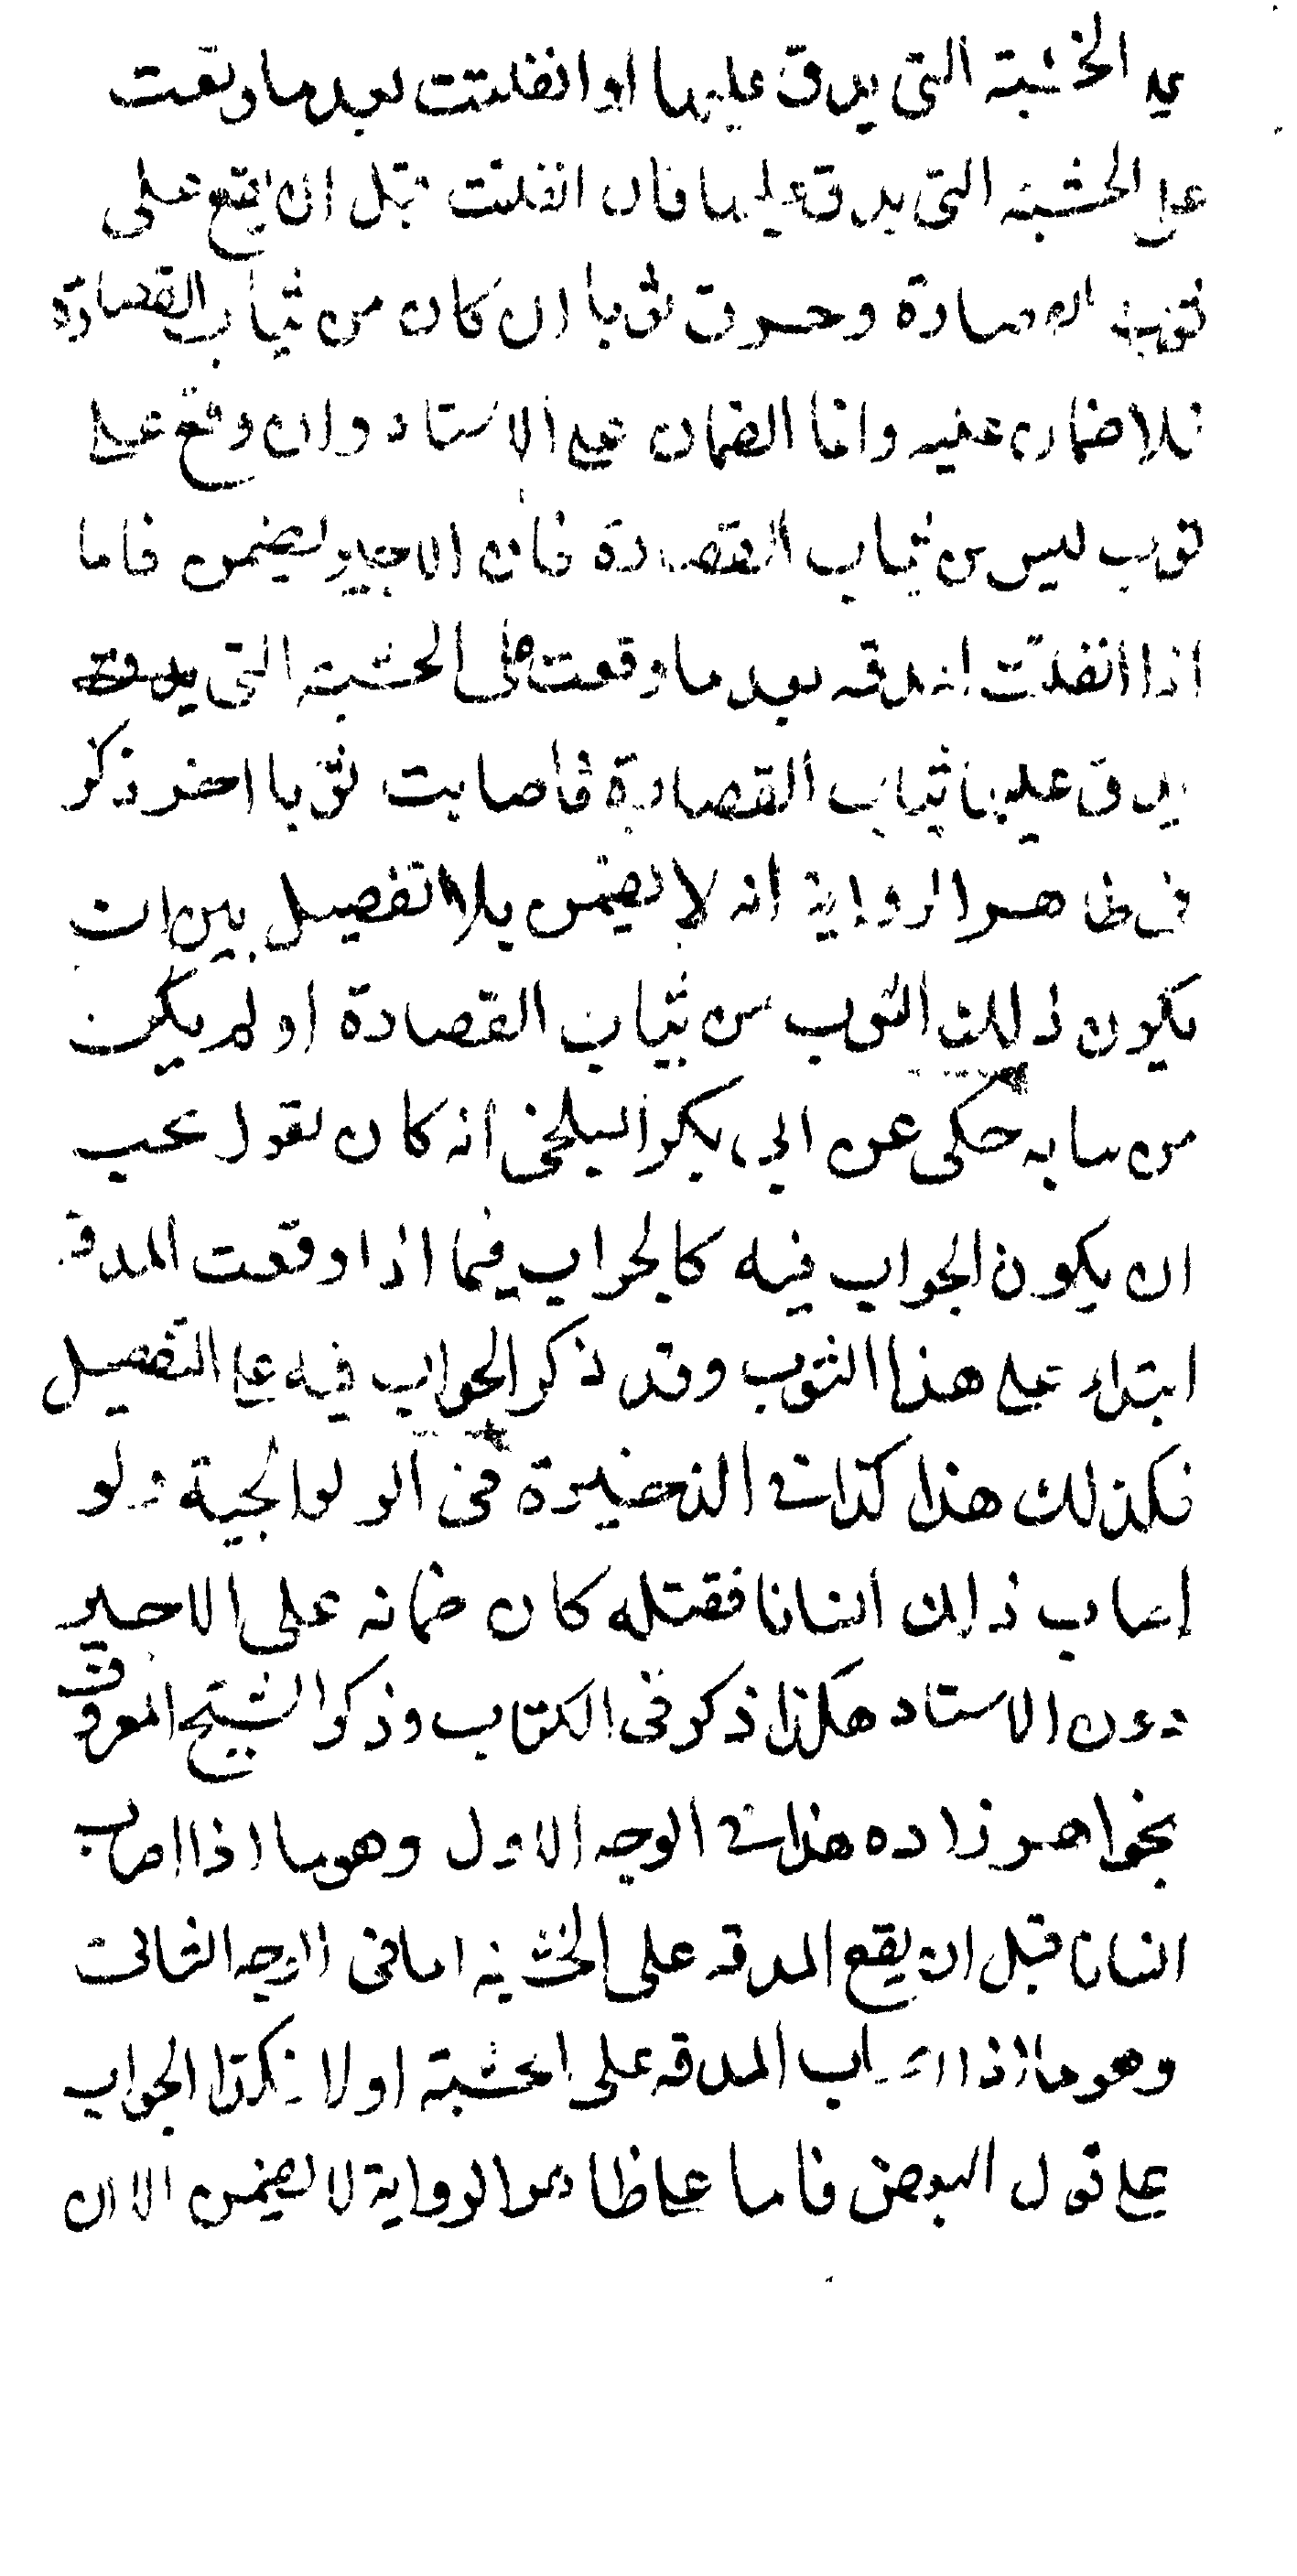 على الخشبة التى يدق عليها او انفلتت بعد ما وقعت
على الخشبة التى يدق عليها فان انفلتت قبل ان يقع على
ثوب القصارة وخرق ثوبا ان كان من ثياب القصارة
فلا ضمان عليه وانما الضمان على الاستاد وان وقع على
ثوب ليس من ثياب القصارة فان الاجير يضمن فاما
اذا انفلتت المدقه بعد ما وقعت على الخشبه التى
يدق عليها ثياب القصارة فأصابت ثوبا اخر ذكر
فى ظاهر الرواية انه لا يضمن بلا تفصيل بين ان
يكون ذلك الثوب من ثياب القصارة او لم يكن
من ثيابه حكى عن ابى بكر البلخى انه كان يقول يجب
ان يكون الجواب فيه كالجواب فيما اذا وقعت المدقه
ابتداء على هذا الثوب وقد ذكر الجواب فيه على التفصيل
فكذلك هذا كذا فى الذخيرة فى الولوالجية ولو
اصاب ذلك انسانا فقتله كان ضمانه على الاجير
دون الاستاد هكذا ذكر فى الكتاب وذكر الشيخ المعروف
بخواهر زاده هذا فى الوجه الاول وهو ما اذا اصاب
انسانا قبل ان يقع المدقه على الخشبه اما فى الوجه الثانى
وهو ما اذا اصاب المدقه على الخشبة اولا فكذا الجواب
على قول البعض فاما على ظاهر الرواية لا يضمن الا ان